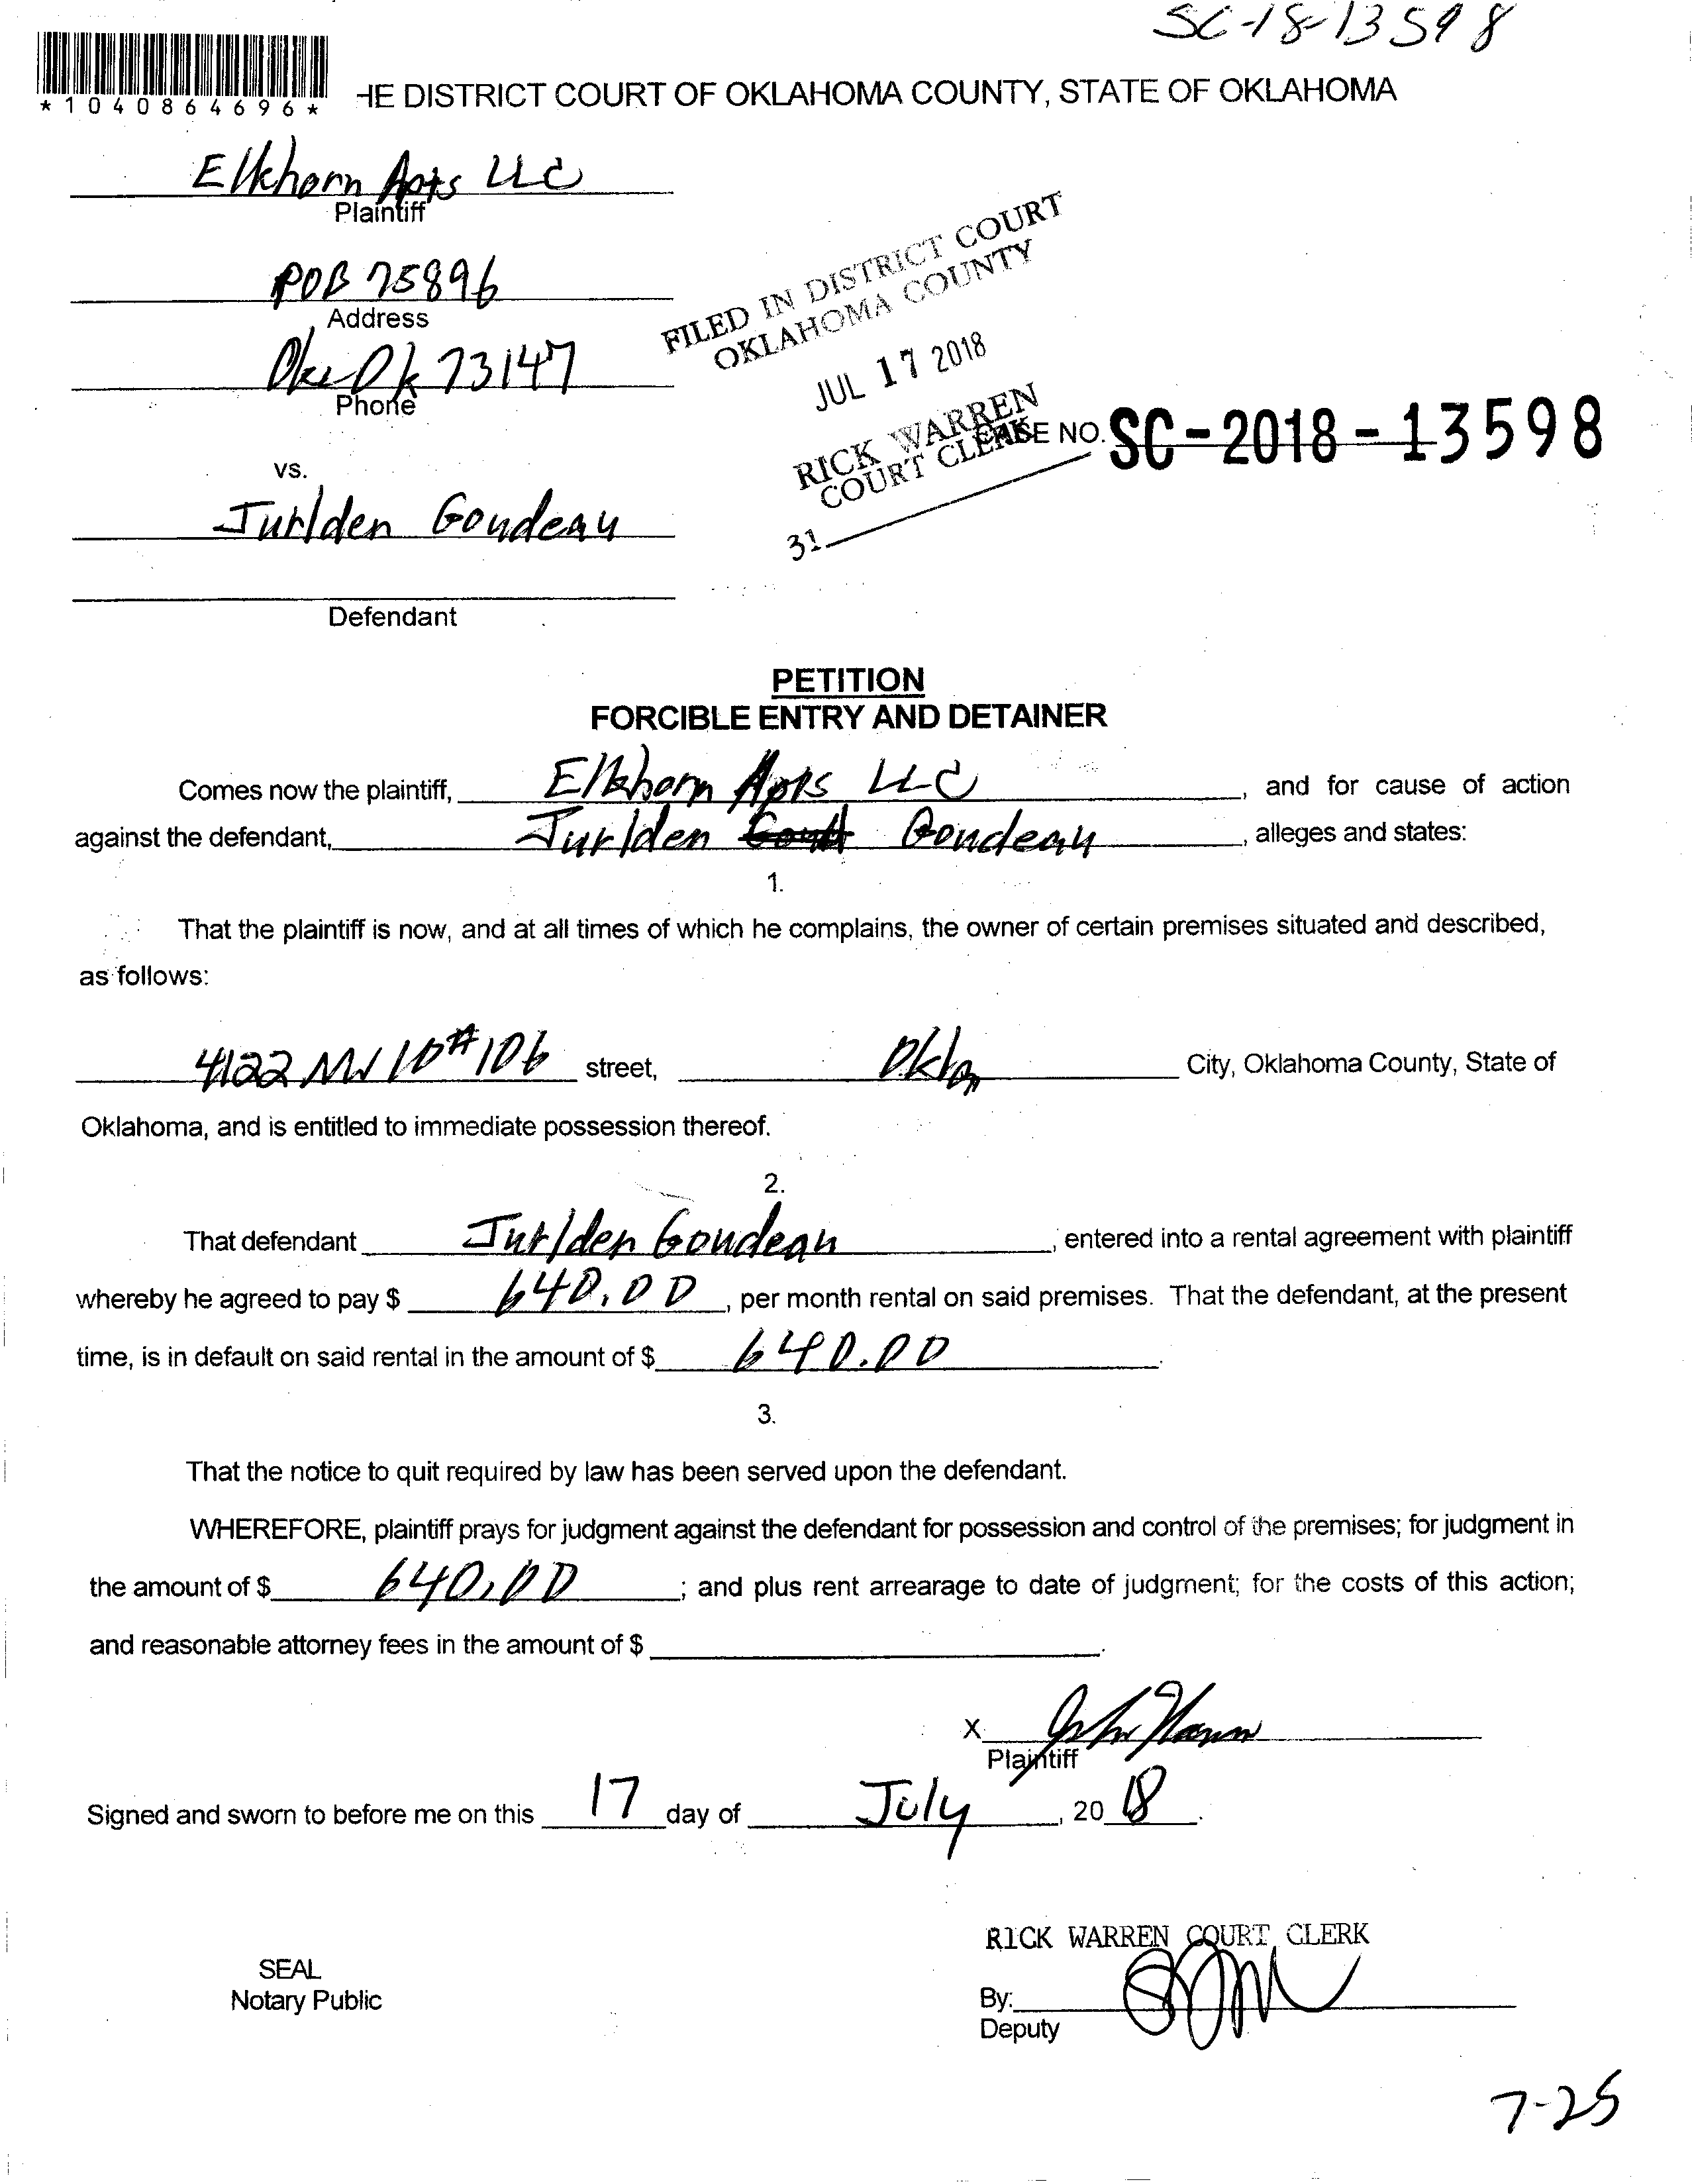 SC-18-13598
*1040864696*
HE DISTRICT COURT OF OKLAHOMA COUNTY, STATE OF OKLAHOMA
Elkhorn Apts LLC
Plaintiff
POB 75896
Address
Okc Ok 73147
Phone
FILED IN DISTRICT COURT
OKLAHOMA COUNTY
JUL 17 2018
RICK WARREN
COURT CLERK
31
CASE NO. SC-2018-13598
vs.
Jurlden Goudeau
Defendant
PETITION
FORCIBLE ENTRY AND DETAINER
Comes now the plaintiff, Elkhorn Apts LLC, and for cause of action
against the defendant, Jurlden Goudeau, alleges and states:
1.
That the plaintiff is now, and at all times of which he complains, the owner of certain premises situated and described,
as follows:
4122 NW 10 #106 street, Okla City, Oklahoma County, State of
Oklahoma, and is entitled to immediate possession thereof.
2.
That defendant Jurlden Goudeau, entered into a rental agreement with plaintiff
whereby he agreed to pay $ 640.00, per month rental on said premises. That the defendant, at the present
time, is in default on said rental in the amount of $ 640.00.
3.
That the notice to quit required by law has been served upon the defendant.
WHEREFORE, plaintiff prays for judgment against the defendant for possession and control of the premises; for judgment in
the amount of $ 640.00; and plus rent arrearage to date of judgment; for the costs of this action;
and reasonable attorney fees in the amount of $ .
X
Plaintiff
Signed and sworn to before me on this 17 day of July, 20 18.
RICK WARREN COURT CLERK
SEAL
Notary Public
By:
Deputy
7-25